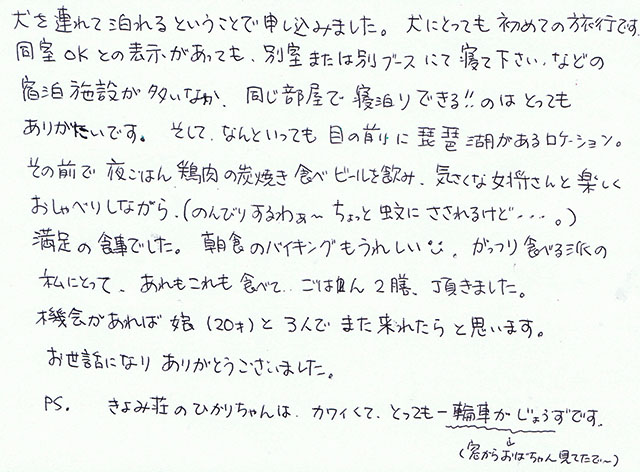 犬を連れて泊れるということで申し込みました。犬にとっても初めての旅行です。
同室OKとの表示があっても、別室または別ブースにて寝て下さい、などの
宿泊施設が多いなか、同じ部屋で寝泊りできる!!のはとっても
ありがたいです。そして、なんといっても目の前に琵琶湖があるロケーション。
その前で夜ごはん鶏肉の炭焼き食べビールを飲み、気さくな女将さんと楽しく
おしゃべりしながら、(のんびりするわぁ〜ちょっと蚊にさされるけど・・・。)
満足の食事でした。朝食のバイキングもうれしい、がっつり食べる派の
私にとって、あれもこれも食べて、ごはん2膳、頂きました。
機会があれば娘(20才)と3人でまた来れたらと思います。
お世話になりありがとうございました。
PS. きよみ荘のひかりちゃんは、カワイくて、とっても一輪車がじょうずです。
(窓からおばちゃん見てたで〜)